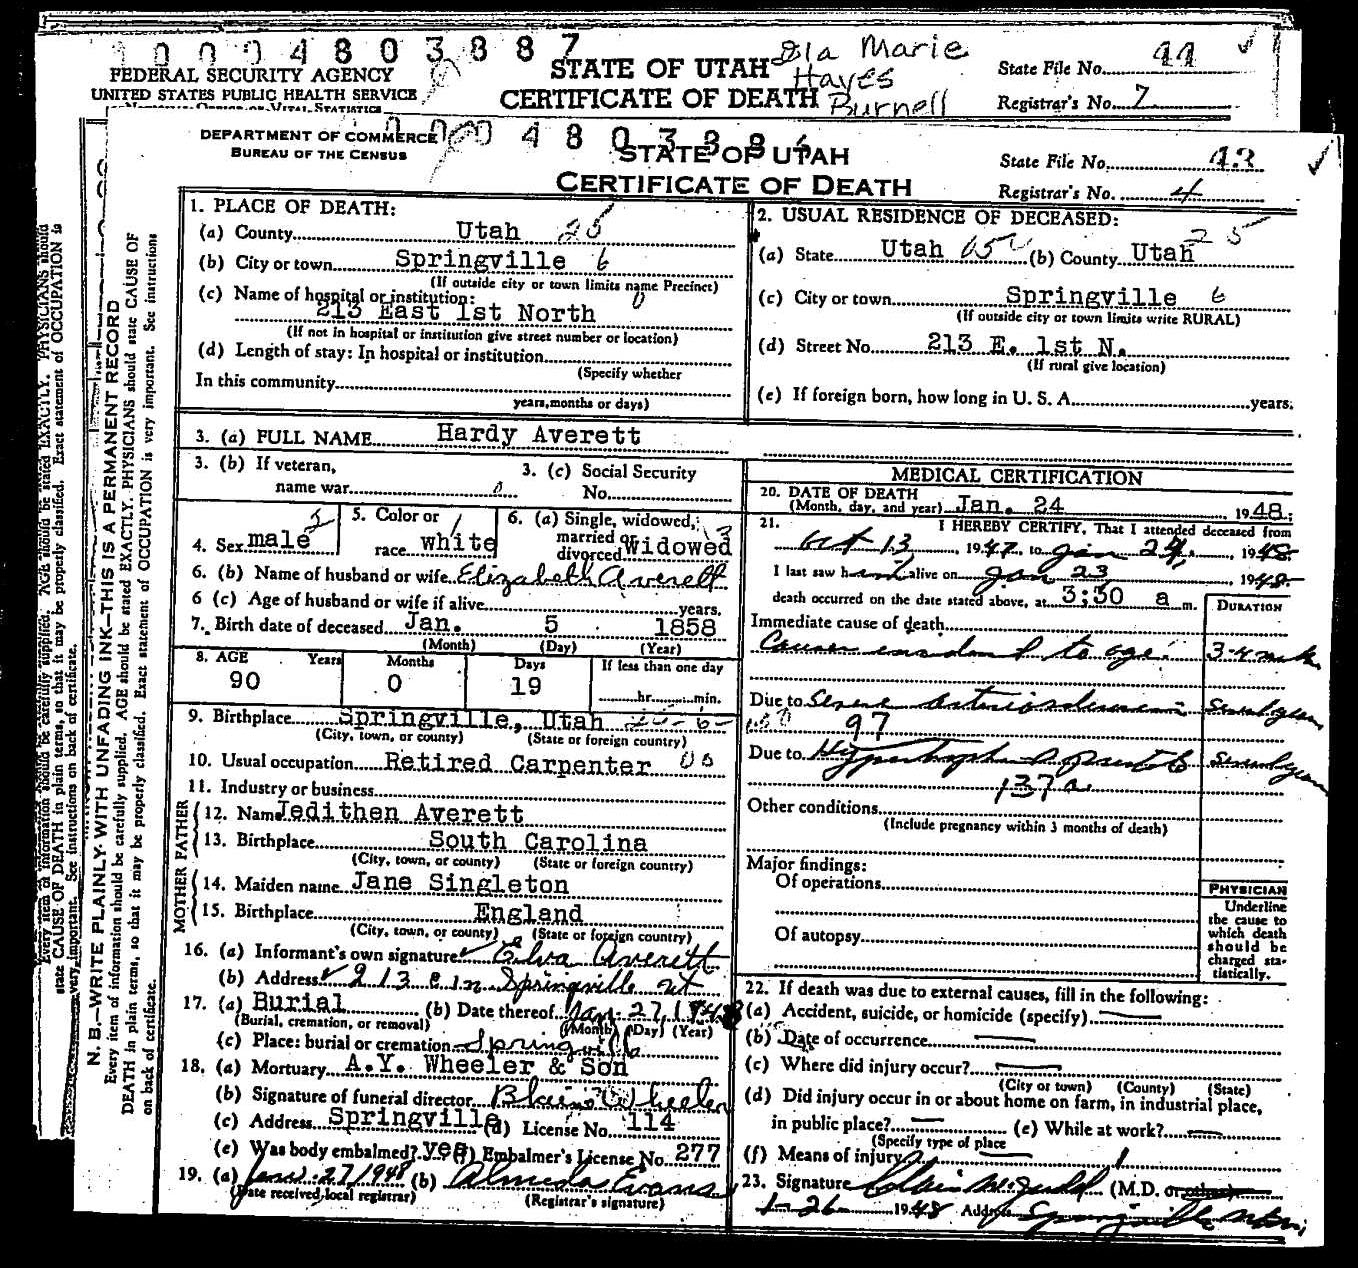 0 0 0 4 8 0 3 8 8 7
FEDERAL SECURITY AGENCY
UNITED STATES PUBLIC HEALTH SERVICE
National Office of Vital Statistics
STATE OF UTAH
CERTIFICATE OF DEATH
Ila Marie
Hayes
Burnell
State File No. 44
Registrar's No. 7
DEPARTMENT OF COMMERCE
BUREAU OF THE CENSUS
STATE OF UTAH
CERTIFICATE OF DEATH
State File No. 43
Registrar's No. 4
1. PLACE OF DEATH:
(a) County Utah 25
(b) City or town Springville 6
(If outside city or town limits name Precinct)
(c) Name of hospital or institution: 0
213 East 1st North
(If not in hospital or institution give street number or location)
(d) Length of stay: In hospital or institution
(Specify whether
In this community
years, months or days)
2. USUAL RESIDENCE OF DECEASED:
(a) State Utah (b) County Utah 25
(c) City or town Springville 6
(If outside city or town limits write RURAL)
(d) Street No. 213 E. 1st N.
(If rural give location)
(e) If foreign born, how long in U. S. A. years.
3. (a) FULL NAME Hardy Averett
3. (b) If veteran,
name war
3. (c) Social Security
No.
4. Sex male
5. Color or
race white
6. (a) Single, widowed,
married or
divorced Widowed
6. (b) Name of husband or wife Elizabeth Averett
6 (c) Age of husband or wife if alive years.
7. Birth date of deceased Jan. 5 1858
(Month) (Day) (Year)
8. AGE Years Months Days If less than one day
90 0 19 hr. min.
9. Birthplace Springville, Utah
(City, town, or county) (State or foreign country)
10. Usual occupation Retired Carpenter
11. Industry or business
FATHER
12. Name Jedithen Averett
13. Birthplace South Carolina
(City, town, or county) (State or foreign country)
MOTHER
14. Maiden name Jane Singleton
15. Birthplace England
(City, town, or county) (State or foreign country)
16. (a) Informant's own signature Elva Averett
(b) Address 213 E 1 N Springville Ut
17. (a) Burial (b) Date thereof Jan. 27, 1948
(Burial, cremation, or removal) (Month) (Day) (Year)
(c) Place: burial or cremation Springville
18. (a) Mortuary A.Y. Wheeler & Son
(b) Signature of funeral director Blaine Wheeler
(c) Address Springville (d) License No. 114
(e) Was body embalmed? yes (f) Embalmer's License No. 277
19. (a) Jan. 27 1948 (b) Almeda Evans
(Date received local registrar) (Registrar's signature)
MEDICAL CERTIFICATION
20. DATE OF DEATH
(Month, day, and year) Jan. 24 1948;
21. I HEREBY CERTIFY, That I attended deceased from
Oct 13, 1947, to Jan 24, 1948
I last saw him alive on Jan 23 1948
death occurred on the date stated above, at 3:30 a m.
DURATION
Immediate cause of death
Causes incident to age.
Due to Severe arteriosclerosis Several years
97
Due to Hypertrophied prostate Several years
137a
Other conditions
(Include pregnancy within 3 months of death)
Major findings:
Of operations
Of autopsy
PHYSICIAN
Underline
the cause to
which death
should be
charged sta-
tistically.
22. If death was due to external causes, fill in the following:
(a) Accident, suicide, or homicide (specify)
(b) Date of occurrence
(c) Where did injury occur?
(City or town) (County) (State)
(d) Did injury occur in or about home on farm, in industrial place,
in public place? (e) While at work?
(Specify type of place
(f) Means of injury
23. Signature (M.D. or other)
1-26 1948 Address Springville Utah
N. B.—WRITE PLAINLY WITH UNFADING INK—THIS IS A PERMANENT RECORD
Every item of information should be carefully supplied. AGE should be stated EXACTLY. PHYSICIANS should state CAUSE OF
DEATH in plain terms, so that it may be properly classified. Exact statement of OCCUPATION is very important. See instructions
on back of certificate.
Every item of information should be carefully supplied. AGE should be stated EXACTLY. PHYSICIANS should
state CAUSE OF DEATH in plain terms, so that it may be properly classified. Exact statement of OCCUPATION is
very important. See instructions on back of certificate.